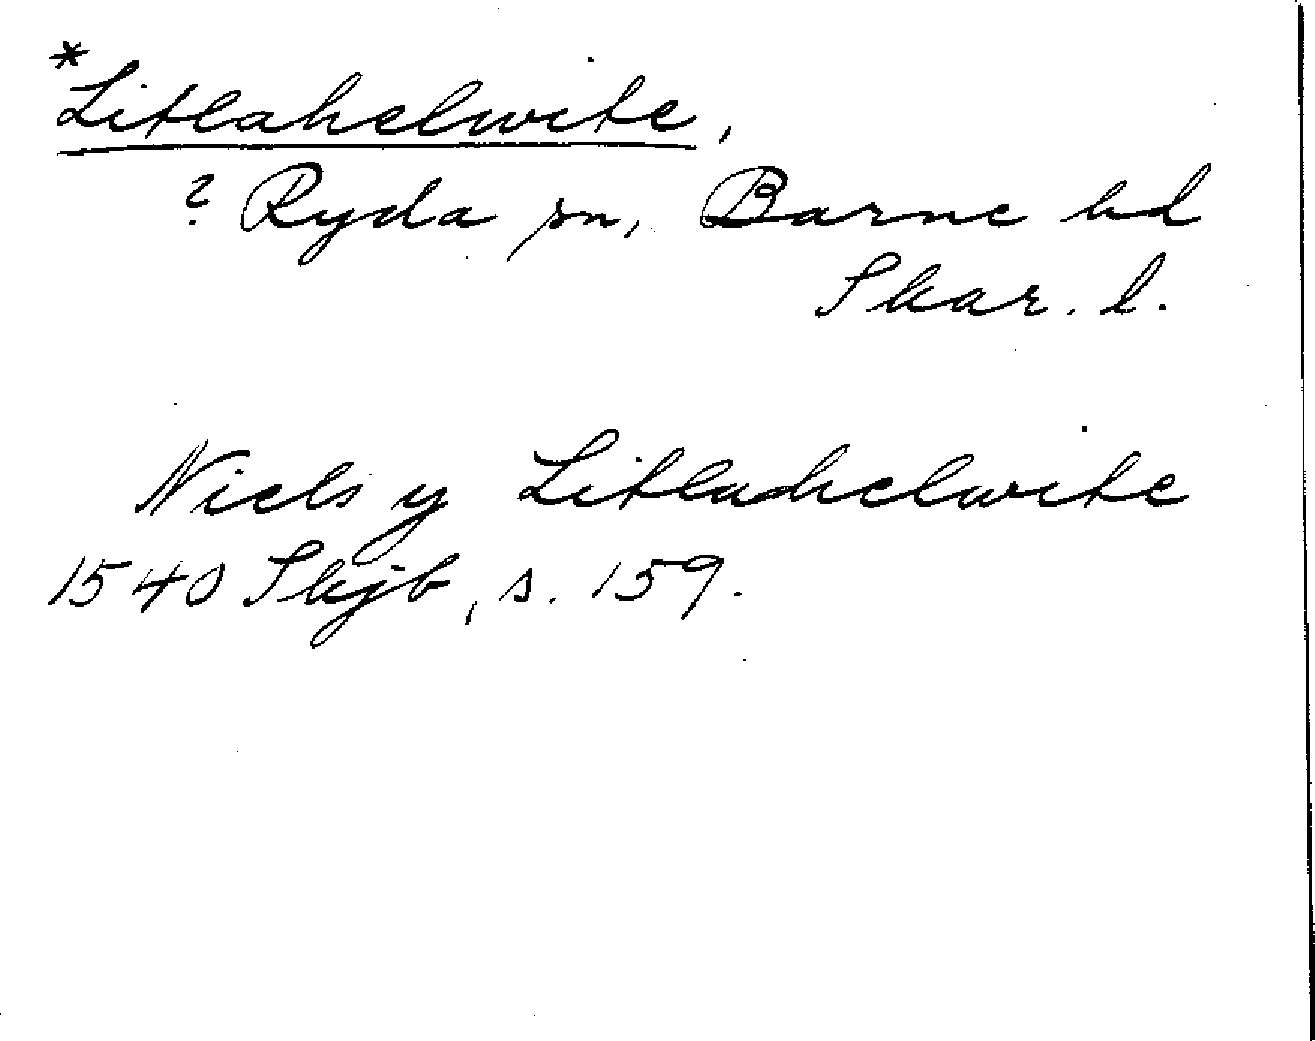 *Litlahelwite,
? Ryda sn, Barne hd
Skar. l.
Niels y Litlahelwite
1540 Skjb, s. 159.